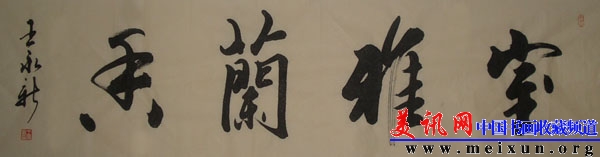 室雅蘭香
王永新
美讯网 中国书画收藏频道
www.meixun.org